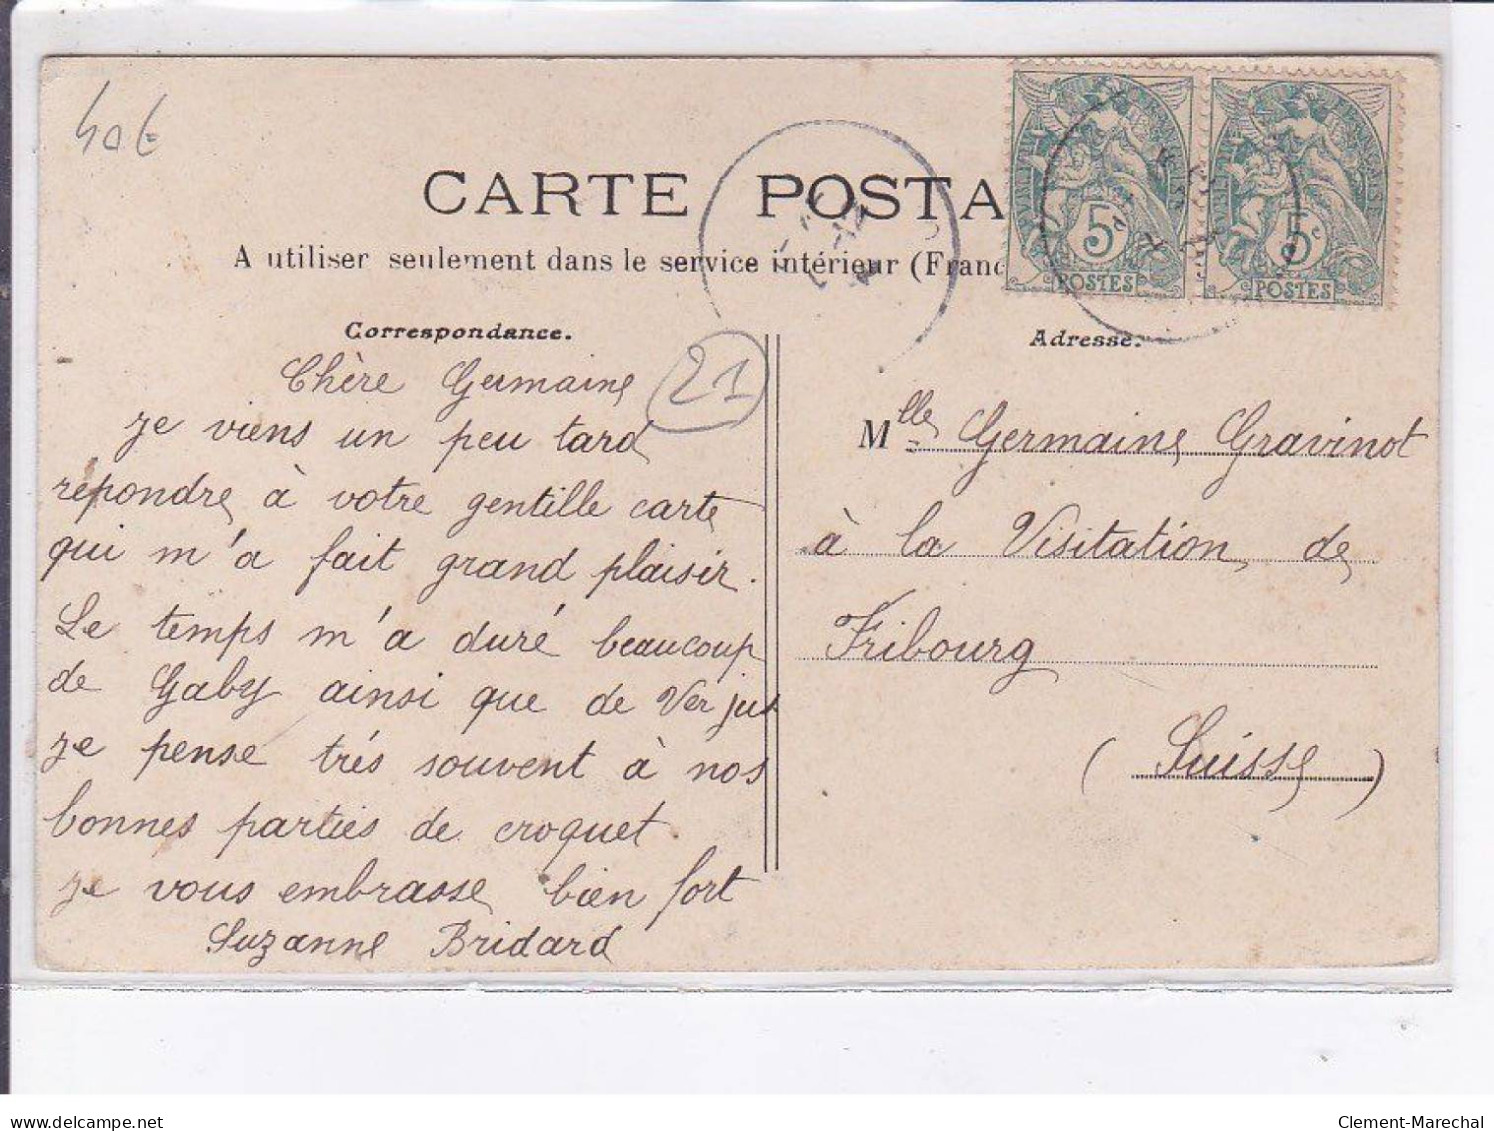 40€
CARTE POSTA
A utiliser seulement dans le service intérieur (Franc
5c
POSTES
5c
POSTES
Correspondance.
Chère Germaine
21
je viens un peu tard
répondre à votre gentille carte
qui m'a fait grand plaisir.
Le temps m'a duré beaucoup
de Gaby ainsi que de Ver jus
je pense très souvent à nos
bonnes parties de croquet.
je vous embrasse bien fort
Suzanne Bridard
Adresse.
Mlle Germaine Gravinot
à la Visitation de
Fribourg
(Suisse)
delcampe.net
Clement-Marechal